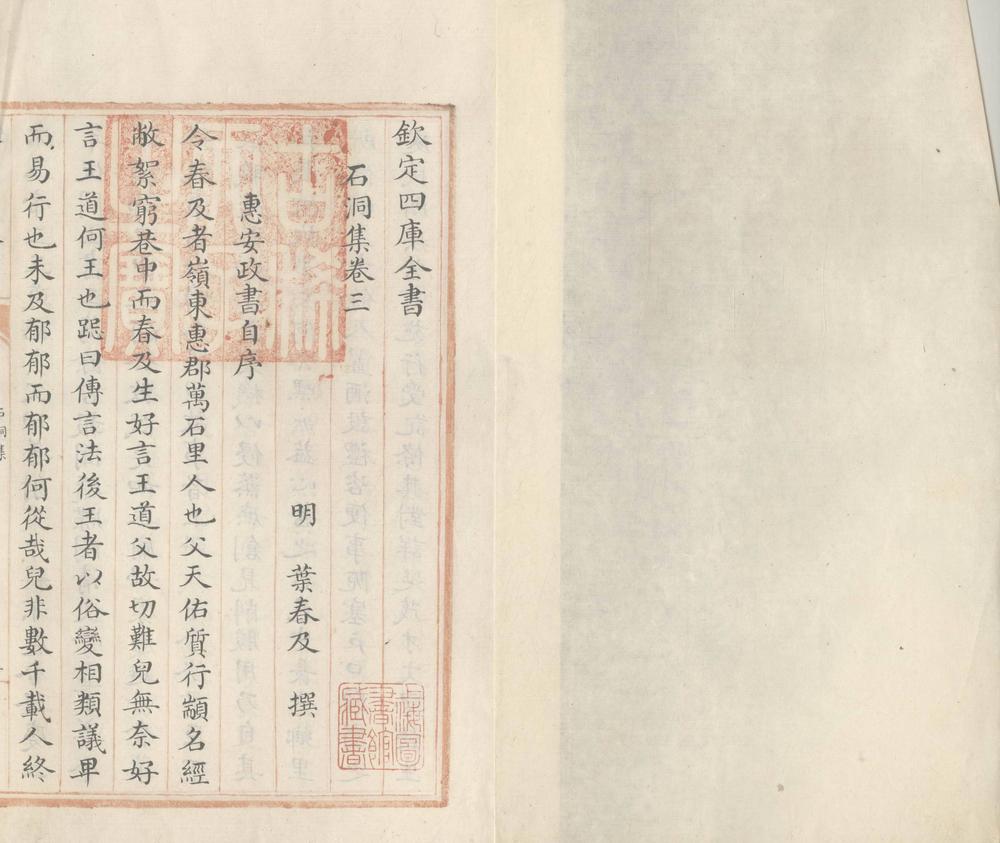 欽定四庫全書
石洞集卷三
明 葉春及 撰
惠安政書自序
令春及者嶺東惠郡萬石里人也父天佑質行顓名經
敝絮窮巷中而春及生好言王道父故切難兒無奈好
言王道何王也跽曰傳言法後王者以俗變相類議卑
而易行也未及郁郁而郁郁何從哉兒非數千載人終
石洞集
浙江圖書館藏書